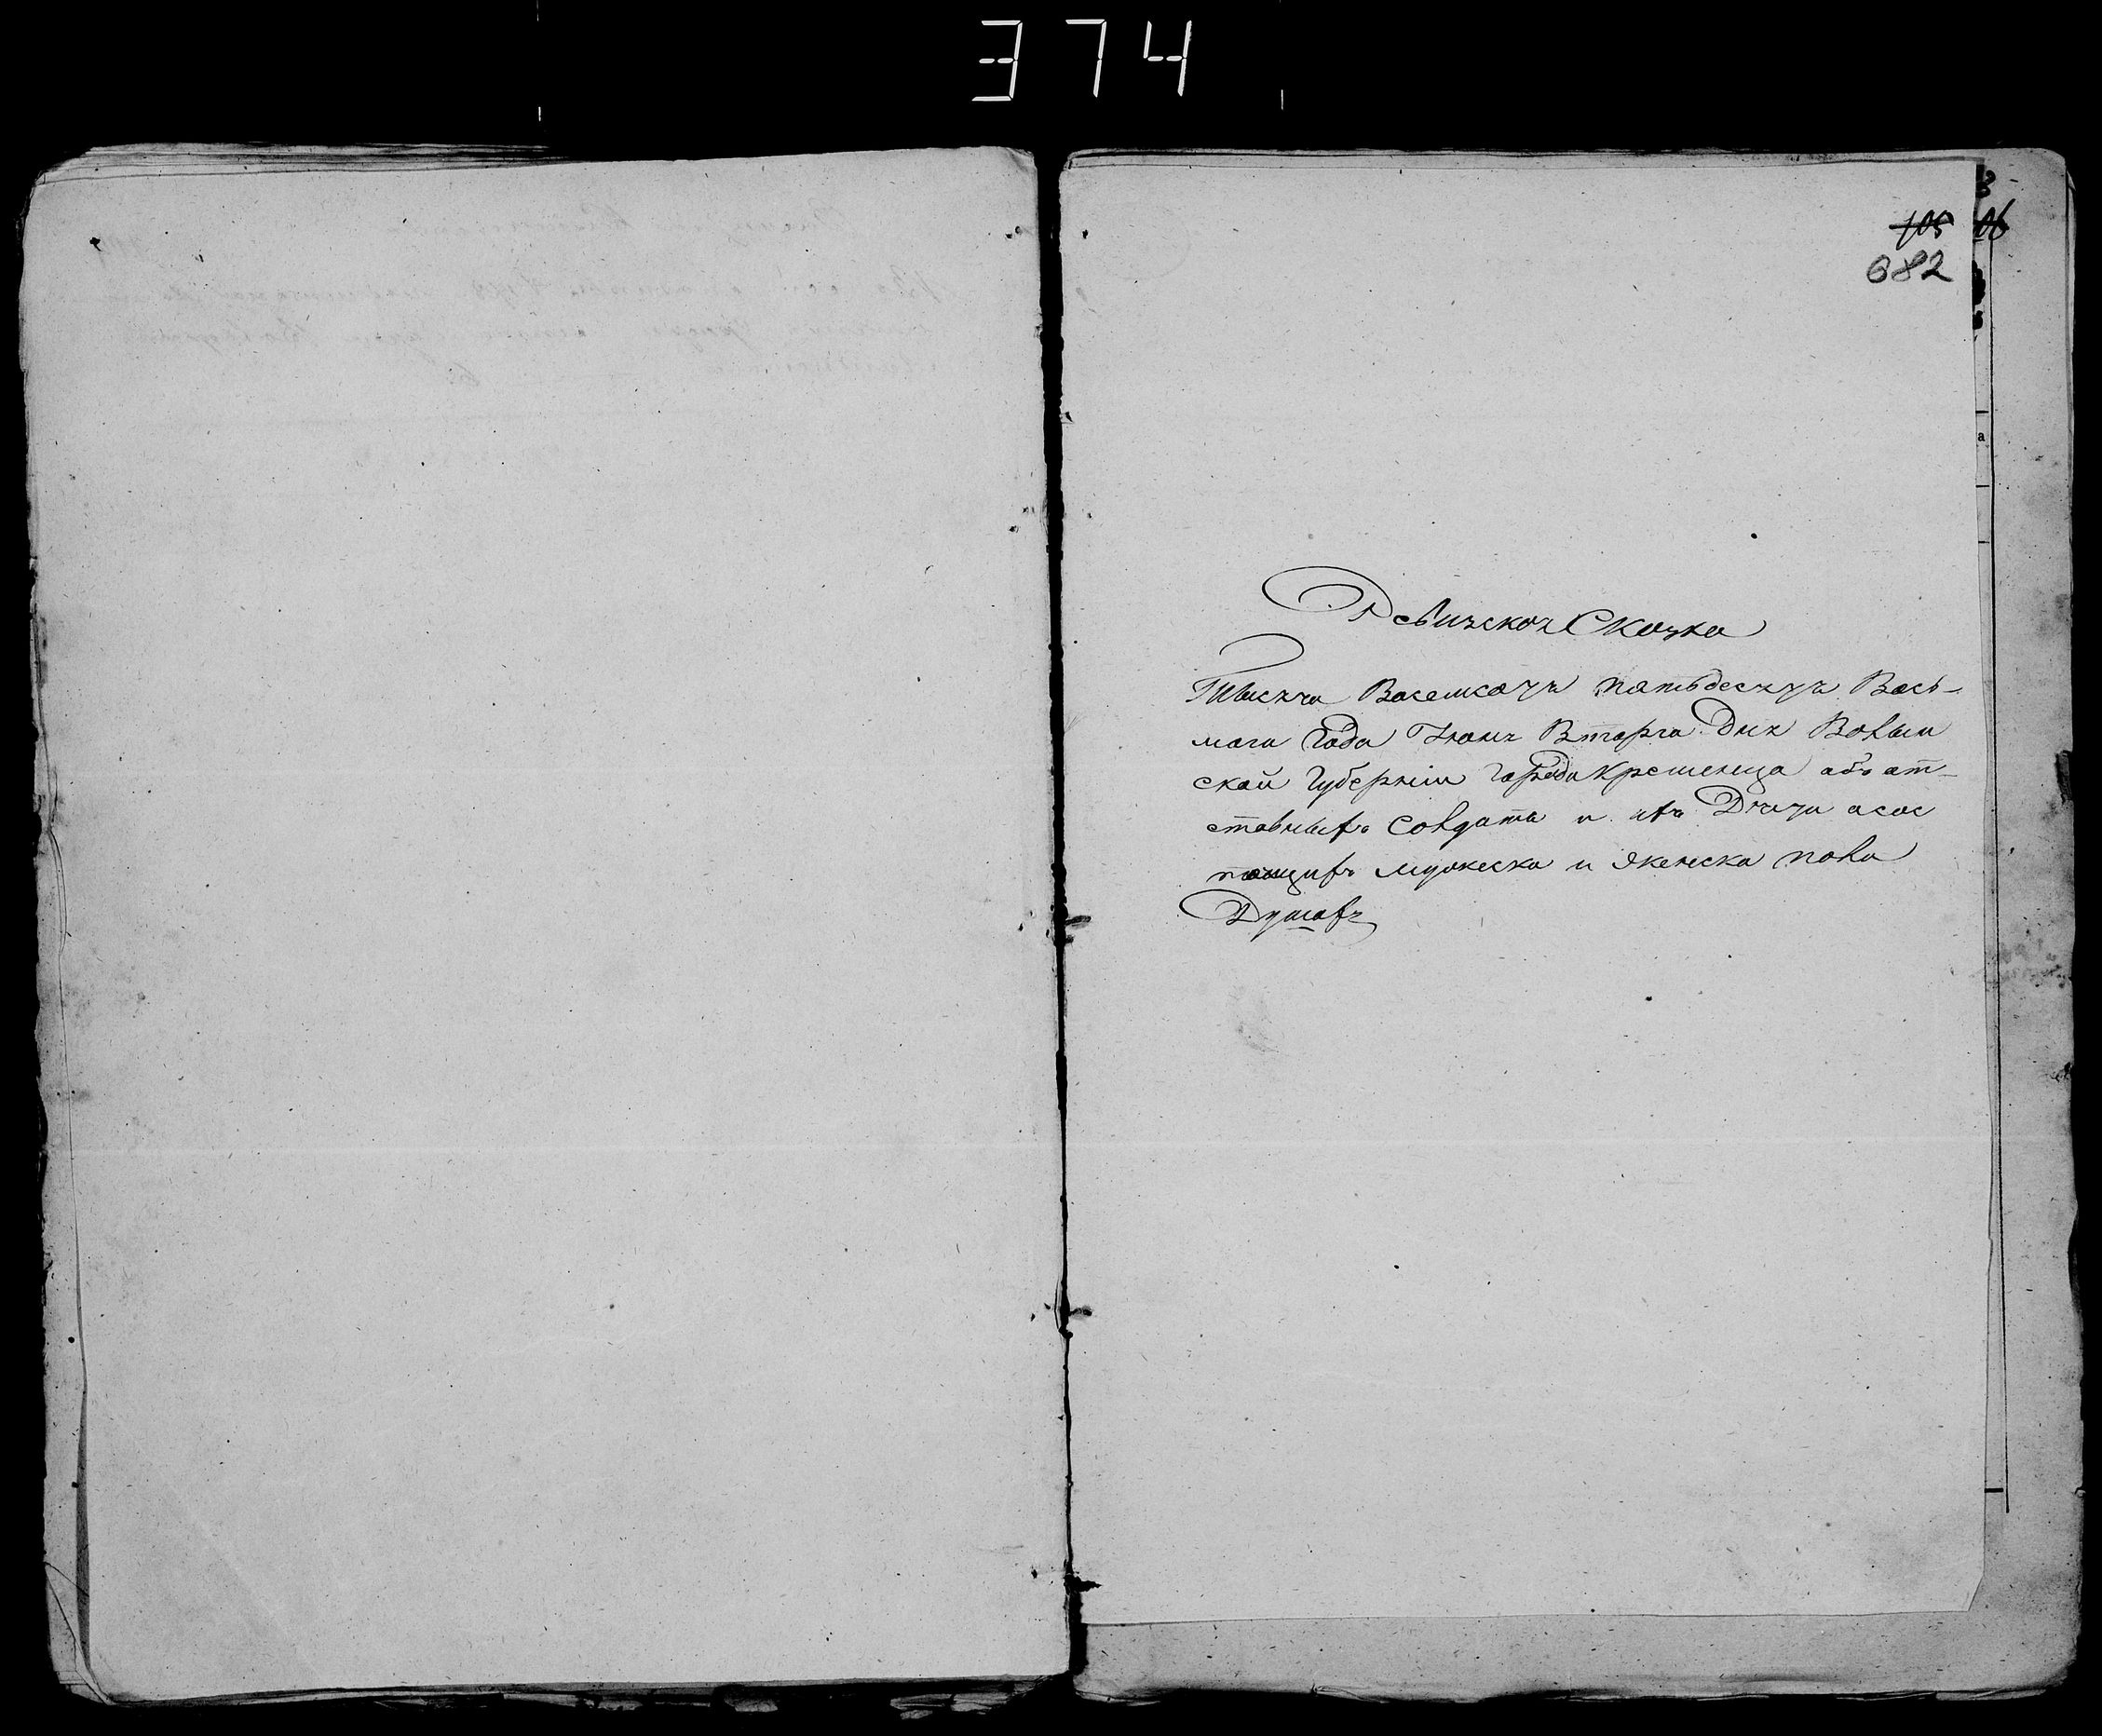 374
105 06
682
Ревизская Сказка
Тысяча Восемсотъ пятьдесятъ Вось-
маго Года Іюня Втарго Дня Волын
ской Губерніи Города Кременца объ от-
ставныхъ Солдатъ и ихъ Дѣтъи
мужеска и женска пола
Душахъ
а